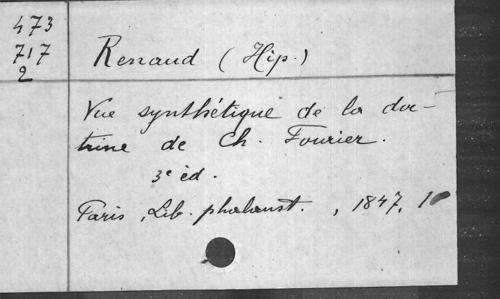 473
717
2
Renaud (Hip.)
Vue synthétique de la doc-
trine de Ch. Fourier.
3e éd.
Paris, Lib. phalanst., 1847,